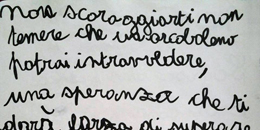 Non scoraggiarti non
temere che un arcobaleno
potrai intravvedere,
una speranza che ti
darà forza di superare